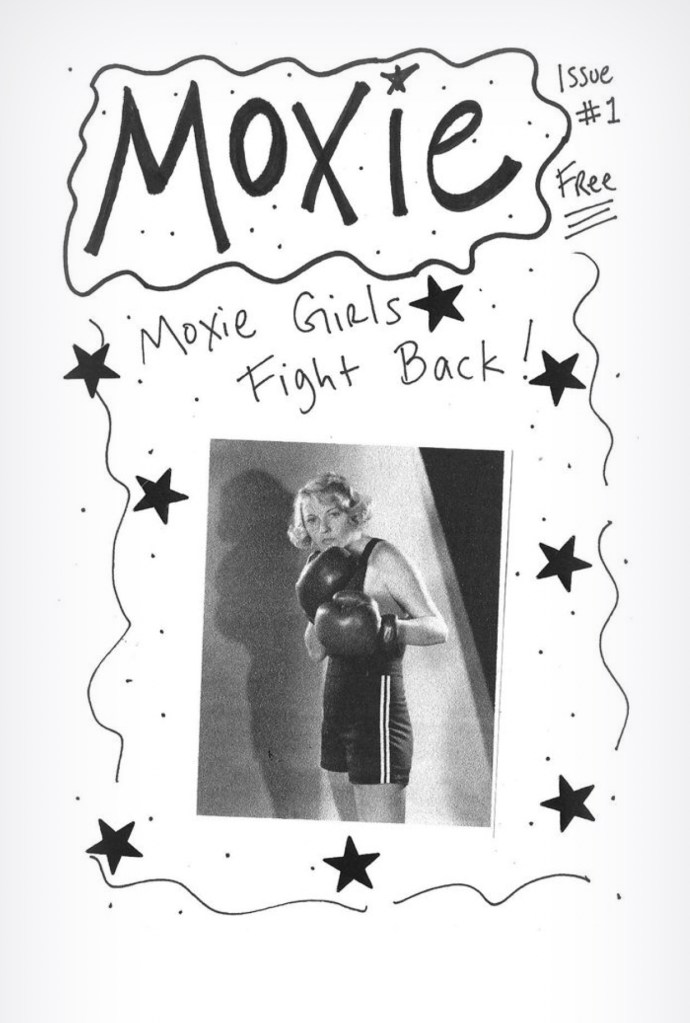 Moxie
Issue
#1
Free
Moxie Girls
Fight Back!